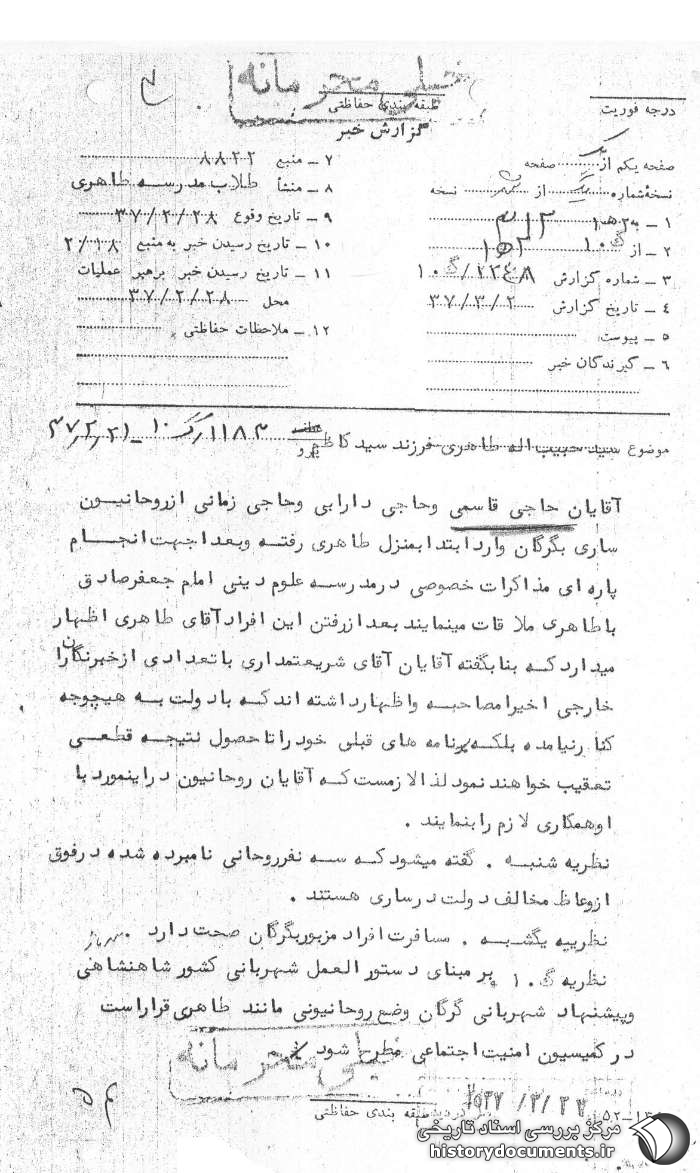 خیلی محرمانه
طبقه بندی حفاظتی
درجه فوریت
گزارش خبر
صفحه یکم از یک صفحه
نسخه شماره از نسخه
۱ ـ به ۳۱۲
۲ ـ از
۳ ـ شماره گزارش
۴ ـ تاریخ گزارش ۳۷/۳/۲
۵ ـ پیوست
۶ ـ گیرندگان خبر
۷ ـ منبع ۸۸۲۲
۸ ـ منشأ طلاب مدرسه طاهری
۹ ـ تاریخ وقوع ۳۷/۲/۲۸
۱۰ ـ تاریخ رسیدن خبر به منبع ۲/۰۱۸
۱۱ ـ تاریخ رسیدن خبر برهبر عملیات
محل ۳۷/۲/۲۸
۱۲ ـ ملاحظات حفاظتی
موضوع سید حبیب اله طاهری فرزند سید کاظم
آقایان حاجی قاسمی وحاجی دارابی وحاجی زمانی ازروحانیون
ساری بگرگان وارد ابتدا بمنزل طاهری رفته وبعد اجهت انجام
پاره ای مذاکرات خصوصی درمدرسه علوم دینی امام جعفرصادق
باطاهری ملاقات مینمایند بعد ازرفتن این افراد آقای طاهری اظهار
میدارد که بنابگفته آقایان آقای شریعتمداری باتعدادی ازخبرنگاران
خارجی اخیرا مصاحبه واظهارداشته اند که بادولت به هیچوجه
کنارنیامده بلکه برنامه های قبلی خود را تاحصول نتیجه قطعی
تعقیب خواهند نمود لذا لازمست که آقایان روحانیون دراینمورد با
اوهمکاری لازم رابنمایند .
نظریه شنبه . گفته میشود که سه نفرروحانی نامبرده شده درفوق
ازوعاظ مخالف دولت درساری هستند .
نظرییه یکشبه . مسافرت افراد مزبوربگرگان صحت دارد .
نظریه گ ۱۰ بر مبنای دستور العمل شهربانی کشور شاهنشاهی
وپیشنهاد شهربانی گرگان وضع روحانیونی مانند طاهری قراراست
در کمیسیون امنیت اجتماعی مطرح شود
خیلی محرمانه
طبقه بندی حفاظتی
مرکز بررسی اسناد تاریخی
historydocuments.ir